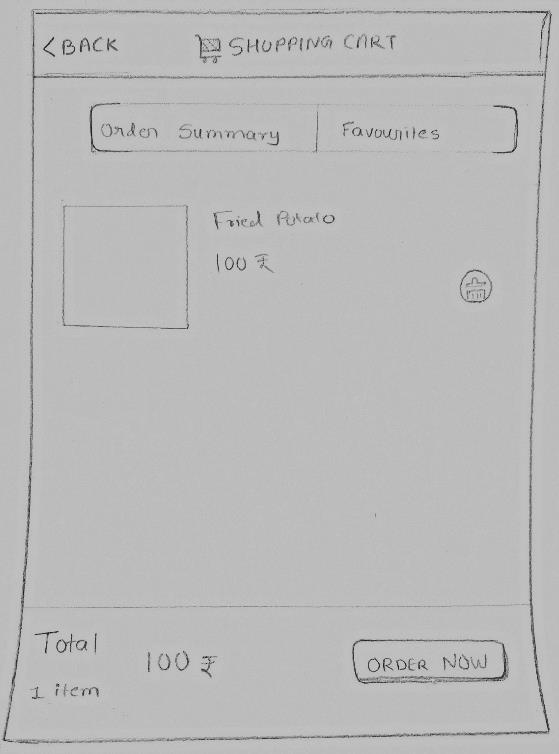 < BACK SHOPPING CART
Order Summary Favourites
Fried Potato
100 ₹
Total
100 ₹
ORDER NOW
1 item